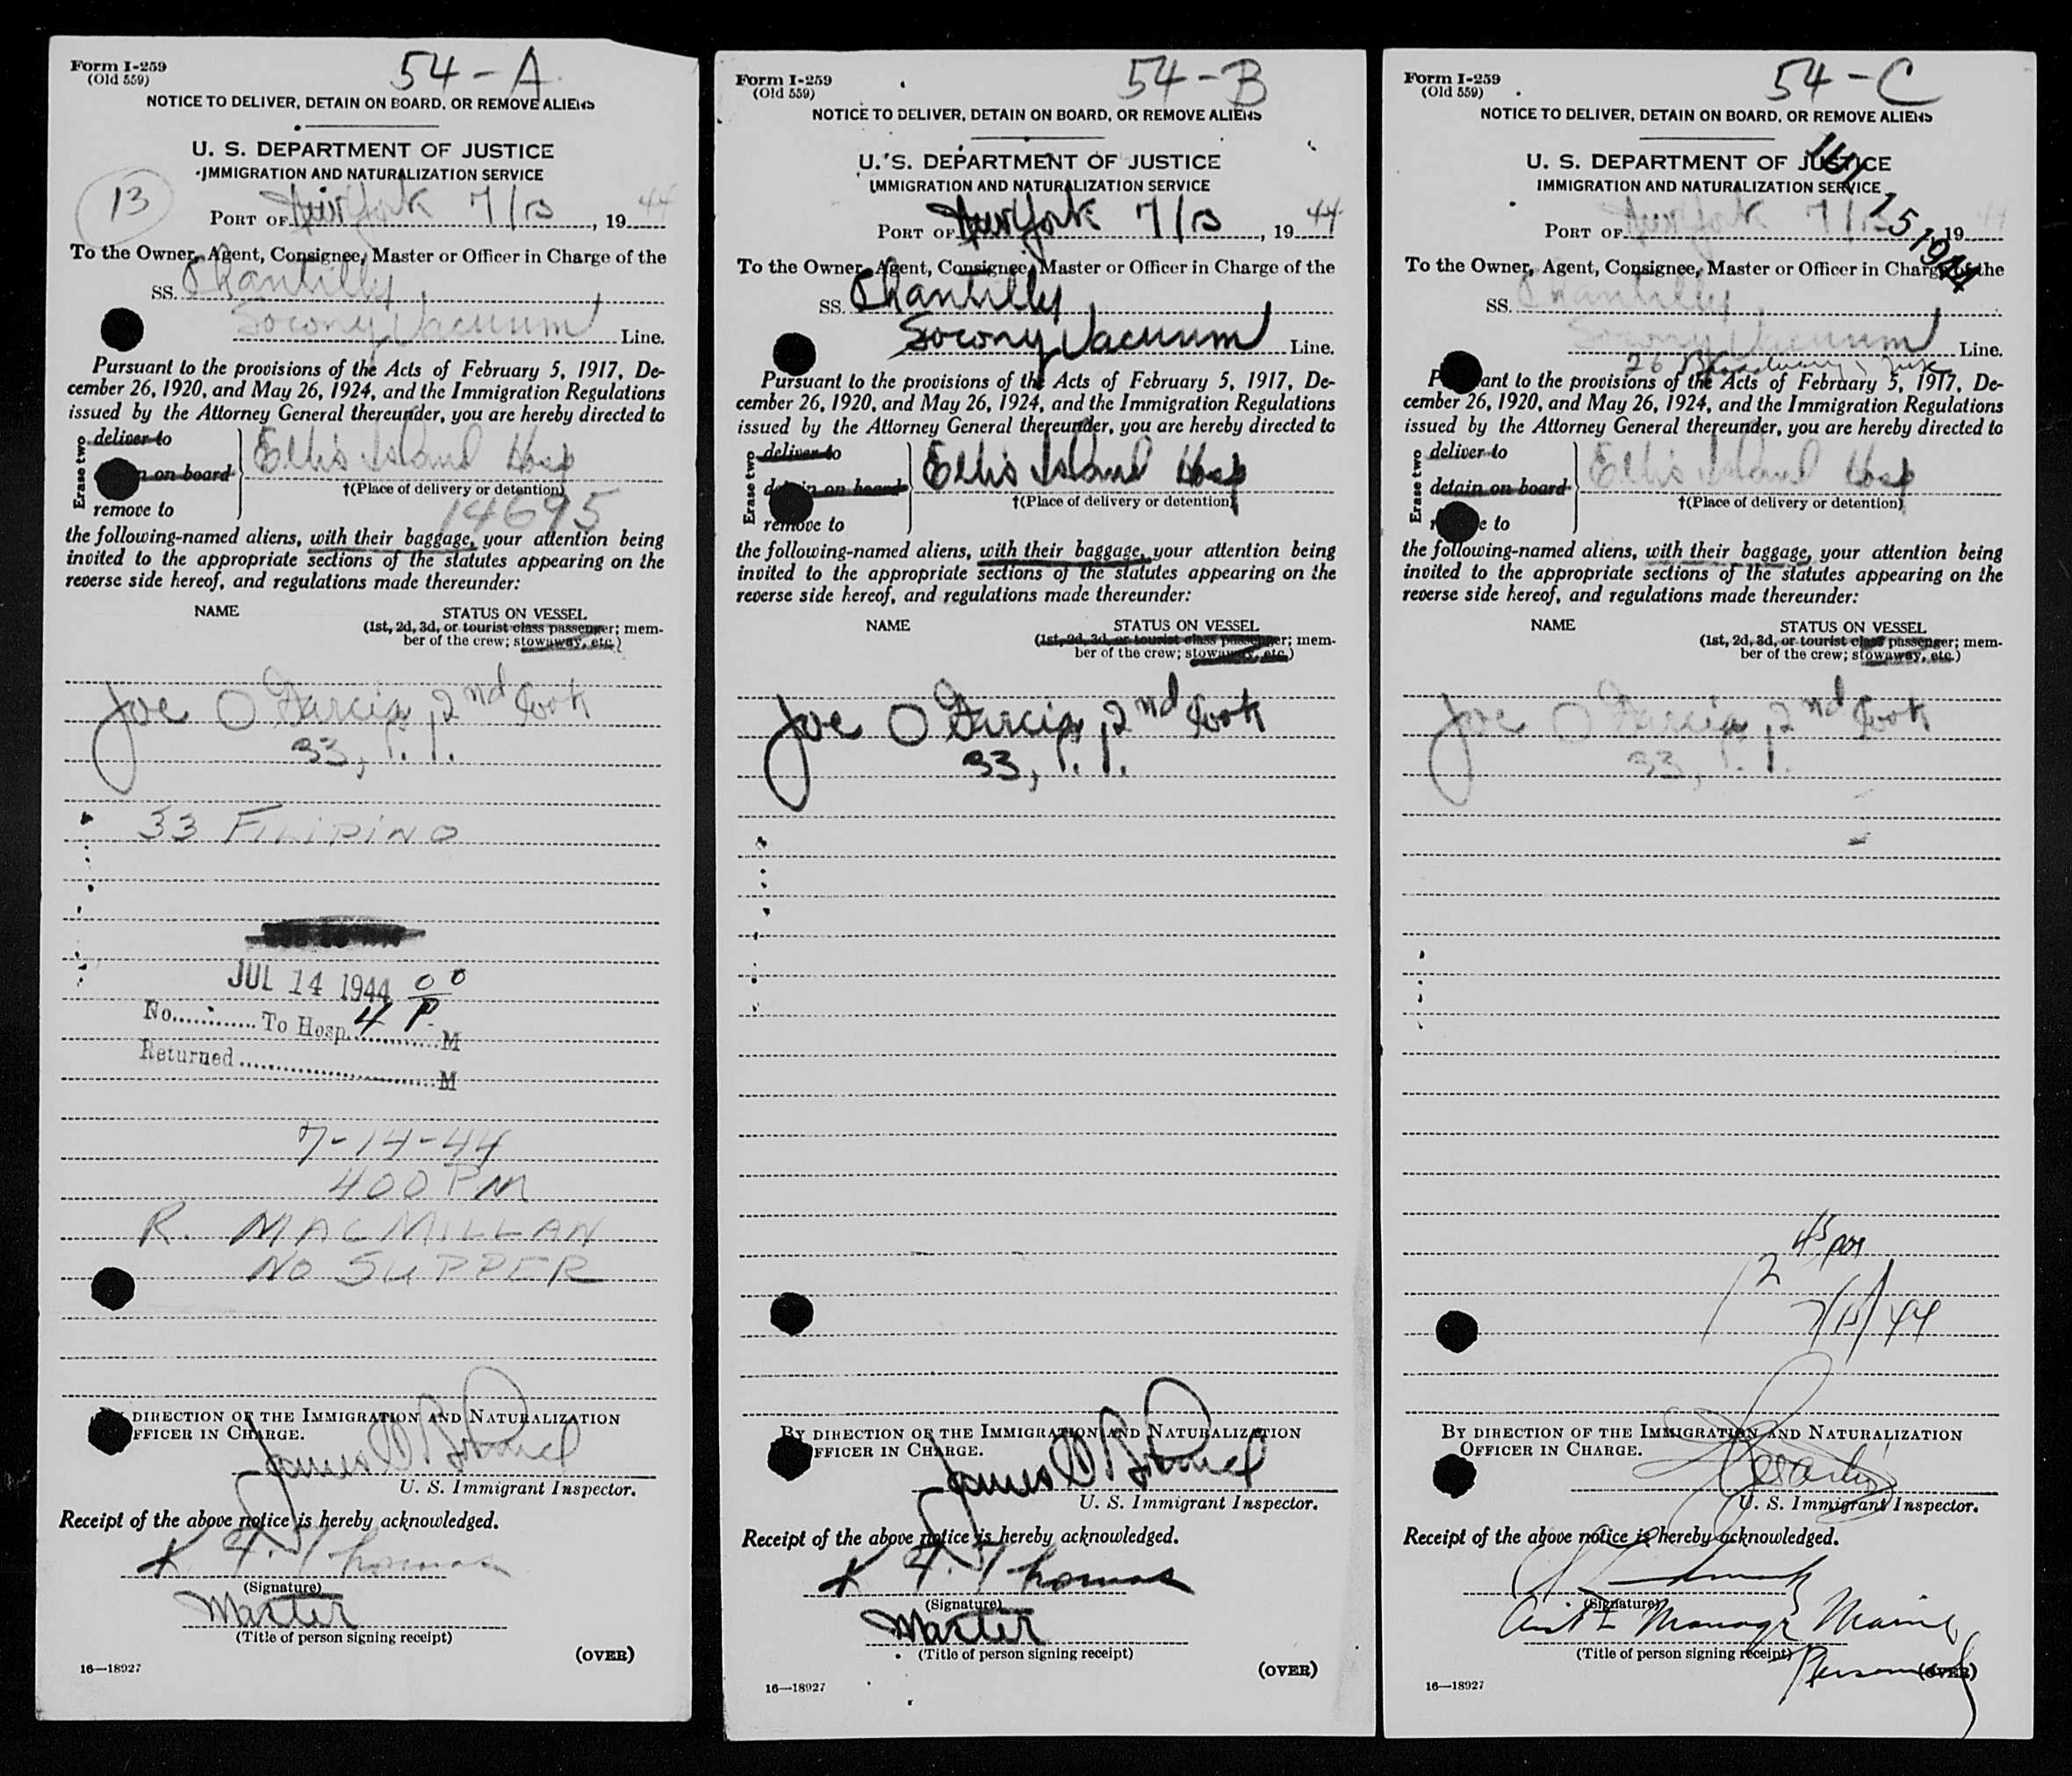 54-A
Form I-259
(Old 559)
NOTICE TO DELIVER, DETAIN ON BOARD, OR REMOVE ALIENS
U. S. DEPARTMENT OF JUSTICE
IMMIGRATION AND NATURALIZATION SERVICE
13
PORT OF New York 7/13, 1944
To the Owner, Agent, Consignee, Master or Officer in Charge of the
SS. Chantilly
Socony Vacuum Line.
Pursuant to the provisions of the Acts of February 5, 1917, De-
cember 26, 1920, and May 26, 1924, and the Immigration Regulations
issued by the Attorney General thereunder, you are hereby directed to
Erase two
deliver to
n on board
remove to
Ellis Island Hosp
†(Place of delivery or detention)
14695
the following-named aliens, with their baggage, your attention being
invited to the appropriate sections of the statutes appearing on the
reverse side hereof, and regulations made thereunder:
NAME STATUS ON VESSEL
(1st, 2d, 3d, or tourist class passenger; mem-
ber of the crew; stowaway, etc.)
Joe O Garcia, 2nd Cook
33, P. I.
33 FILIPINO
JUL 14 1944 00
No. To Hosp. 4 P. M
Returned M
7-14-44
400 PM
R. MACMILLAN
NO SUPPER
DIRECTION OF THE IMMIGRATION AND NATURALIZATION
FFICER IN CHARGE.
James
U. S. Immigrant Inspector.
Receipt of the above notice is hereby acknowledged.
Thomas
(Signature)
Master
(Title of person signing receipt)
(OVER)
16—18927
54-B
Form I-259
(Old 559)
NOTICE TO DELIVER, DETAIN ON BOARD, OR REMOVE ALIENS
U. S. DEPARTMENT OF JUSTICE
IMMIGRATION AND NATURALIZATION SERVICE
PORT OF New York 7/13, 1944
To the Owner, Agent, Consignee, Master or Officer in Charge of the
SS. Chantilly
Socony Vacuum Line.
Pursuant to the provisions of the Acts of February 5, 1917, De-
cember 26, 1920, and May 26, 1924, and the Immigration Regulations
issued by the Attorney General thereunder, you are hereby directed to
Erase two
deliver to
detain on board
remove to
Ellis Island Hosp
†(Place of delivery or detention)
the following-named aliens, with their baggage, your attention being
invited to the appropriate sections of the statutes appearing on the
reverse side hereof, and regulations made thereunder:
NAME STATUS ON VESSEL
(1st, 2d, 3d, or tourist class passenger; mem-
ber of the crew; stowaway, etc.)
Joe O Garcia, 2nd Cook
33, P. I.
BY DIRECTION OF THE IMMIGRATION AND NATURALIZATION
FFICER IN CHARGE.
James
U. S. Immigrant Inspector.
Receipt of the above notice is hereby acknowledged.
Thomas
(Signature)
Master
(Title of person signing receipt)
(OVER)
16—18927
54-C
Form I-259
(Old 559)
NOTICE TO DELIVER, DETAIN ON BOARD, OR REMOVE ALIENS
U. S. DEPARTMENT OF JUSTICE
IMMIGRATION AND NATURALIZATION SERVICE
JUL 15 1944
PORT OF New York 7/13, 1944
To the Owner, Agent, Consignee, Master or Officer in Charge of the
SS. Chantilly
Socony Vacuum Line.
26 Broadway
P ant to the provisions of the Acts of February 5, 1917, De-
cember 26, 1920, and May 26, 1924, and the Immigration Regulations
issued by the Attorney General thereunder, you are hereby directed to
Erase two
deliver to
detain on board
r e to
Ellis Island Hosp
†(Place of delivery or detention)
the following-named aliens, with their baggage, your attention being
invited to the appropriate sections of the statutes appearing on the
reverse side hereof, and regulations made thereunder:
NAME STATUS ON VESSEL
(1st, 2d, 3d, or tourist class passenger; mem-
ber of the crew; stowaway, etc.)
Joe O Garcia, 2nd Cook
33, P. I.
12 45 pm
7/15/44
BY DIRECTION OF THE IMMIGRATION AND NATURALIZATION
OFFICER IN CHARGE.
U. S. Immigrant Inspector.
Receipt of the above notice is hereby acknowledged.
(Signature)
Asst Manager Marine
(Title of person signing receipt)
Personnel
(OVER)
16—18927